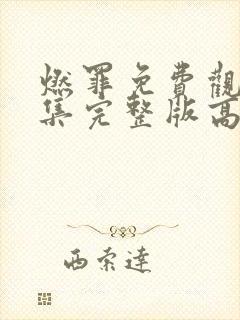 燃罪免費觀
集完整版高
西索達